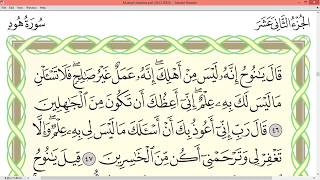 الجزء الثاني عشر
سورة هود
قَالَ يَٰنُوحُ إِنَّهُۥ لَيْسَ مِنْ أَهْلِكَ إِنَّهُۥ عَمَلٌ غَيْرُ صَٰلِحٍ فَلَا تَسْـَٔلْنِ
مَا لَيْسَ لَكَ بِهِۦ عِلْمٌ إِنِّىٓ أَعِظُكَ أَن تَكُونَ مِنَ ٱلْجَٰهِلِينَ
٤٦ قَالَ رَبِّ إِنِّىٓ أَعُوذُ بِكَ أَنْ أَسْـَٔلَكَ مَا لَيْسَ لِى بِهِۦ عِلْمٌ وَإِلَّا
تَغْفِرْ لِى وَتَرْحَمْنِىٓ أَكُن مِّنَ ٱلْخَٰسِرِينَ ٤٧ قِيلَ يَٰنُوحُ